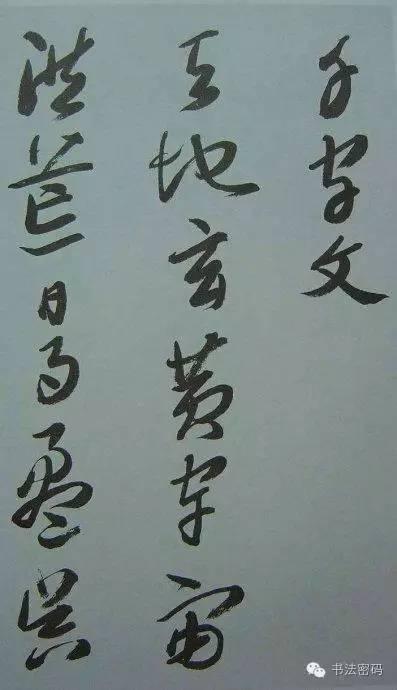 千字文
天地玄黄宇宙
洪荒日月盈昃
书法密码